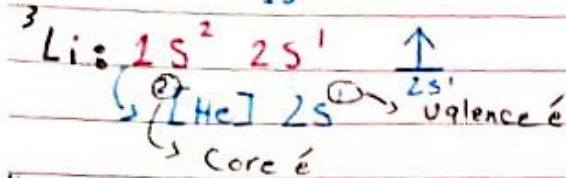 ³Li: 1S² 2S¹ ↑
2S¹
② [He] 2S ① → valence é
Core é